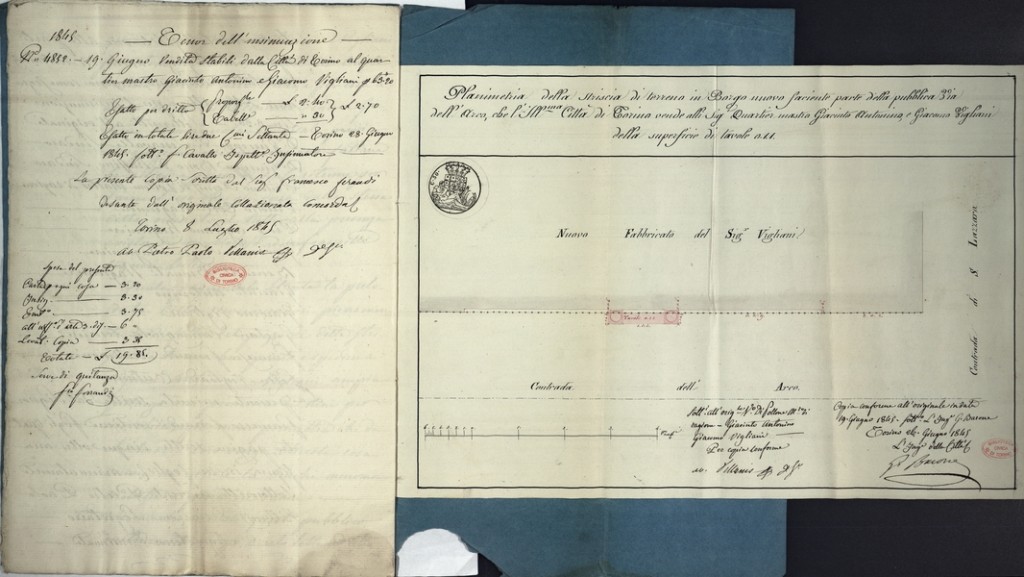 1845
Tenor dell'insinuazione
N° 4852 - 19. Giugno Vendita stabili dalla Città di Torino al quar-
tier mastro Giacinto Antonino e Giacomo Vigliani
Esatto in dritto Propor.le £ 2.40 £ 2.70
Tabell.e " 30
Esatto in totale lire due C.mi Settanta - Torino 28 Giugno
1845. sott.° f. Cavalli Insinuatore
La presente copia scritta dal Sig.r Francesco Ferandi
dall'originale collazionata concorda
Torino 8 Luglio 1845
Pietro Paolo Villanis
Spese del presente
copia — 3.20
3.30
3.75
6 "
Copia — 3.35
Totale — £ 19.85
Serve di quitanza
Planimetria della striscia di terreno in Borgo nuovo faciente parte della pubblica Via
dell'Arco, che l'Ill.ma Città di Torino vende alli Sig.ri Quartier mastro Giacinto Antonino, e Giacomo Vigliani
della superficie di tavole 0.2.1.
Nuovo Fabbricato del Sig.r Vigliani
Contrada di S. Lazzaro
Contrada dell' Arco
Sott. all'orig.le
Giacinto Antonino
Giacomo Vigliani
Per copia conforme
Villanis
Copia conforme all'originale in data
19 Giugno 1845. sott.° L'Ing.e G. Barone
Torino Giugno 1845
L'Ing.e della Città
G. Barone
BIBLIOTECA
CIVICA
DI TORINO